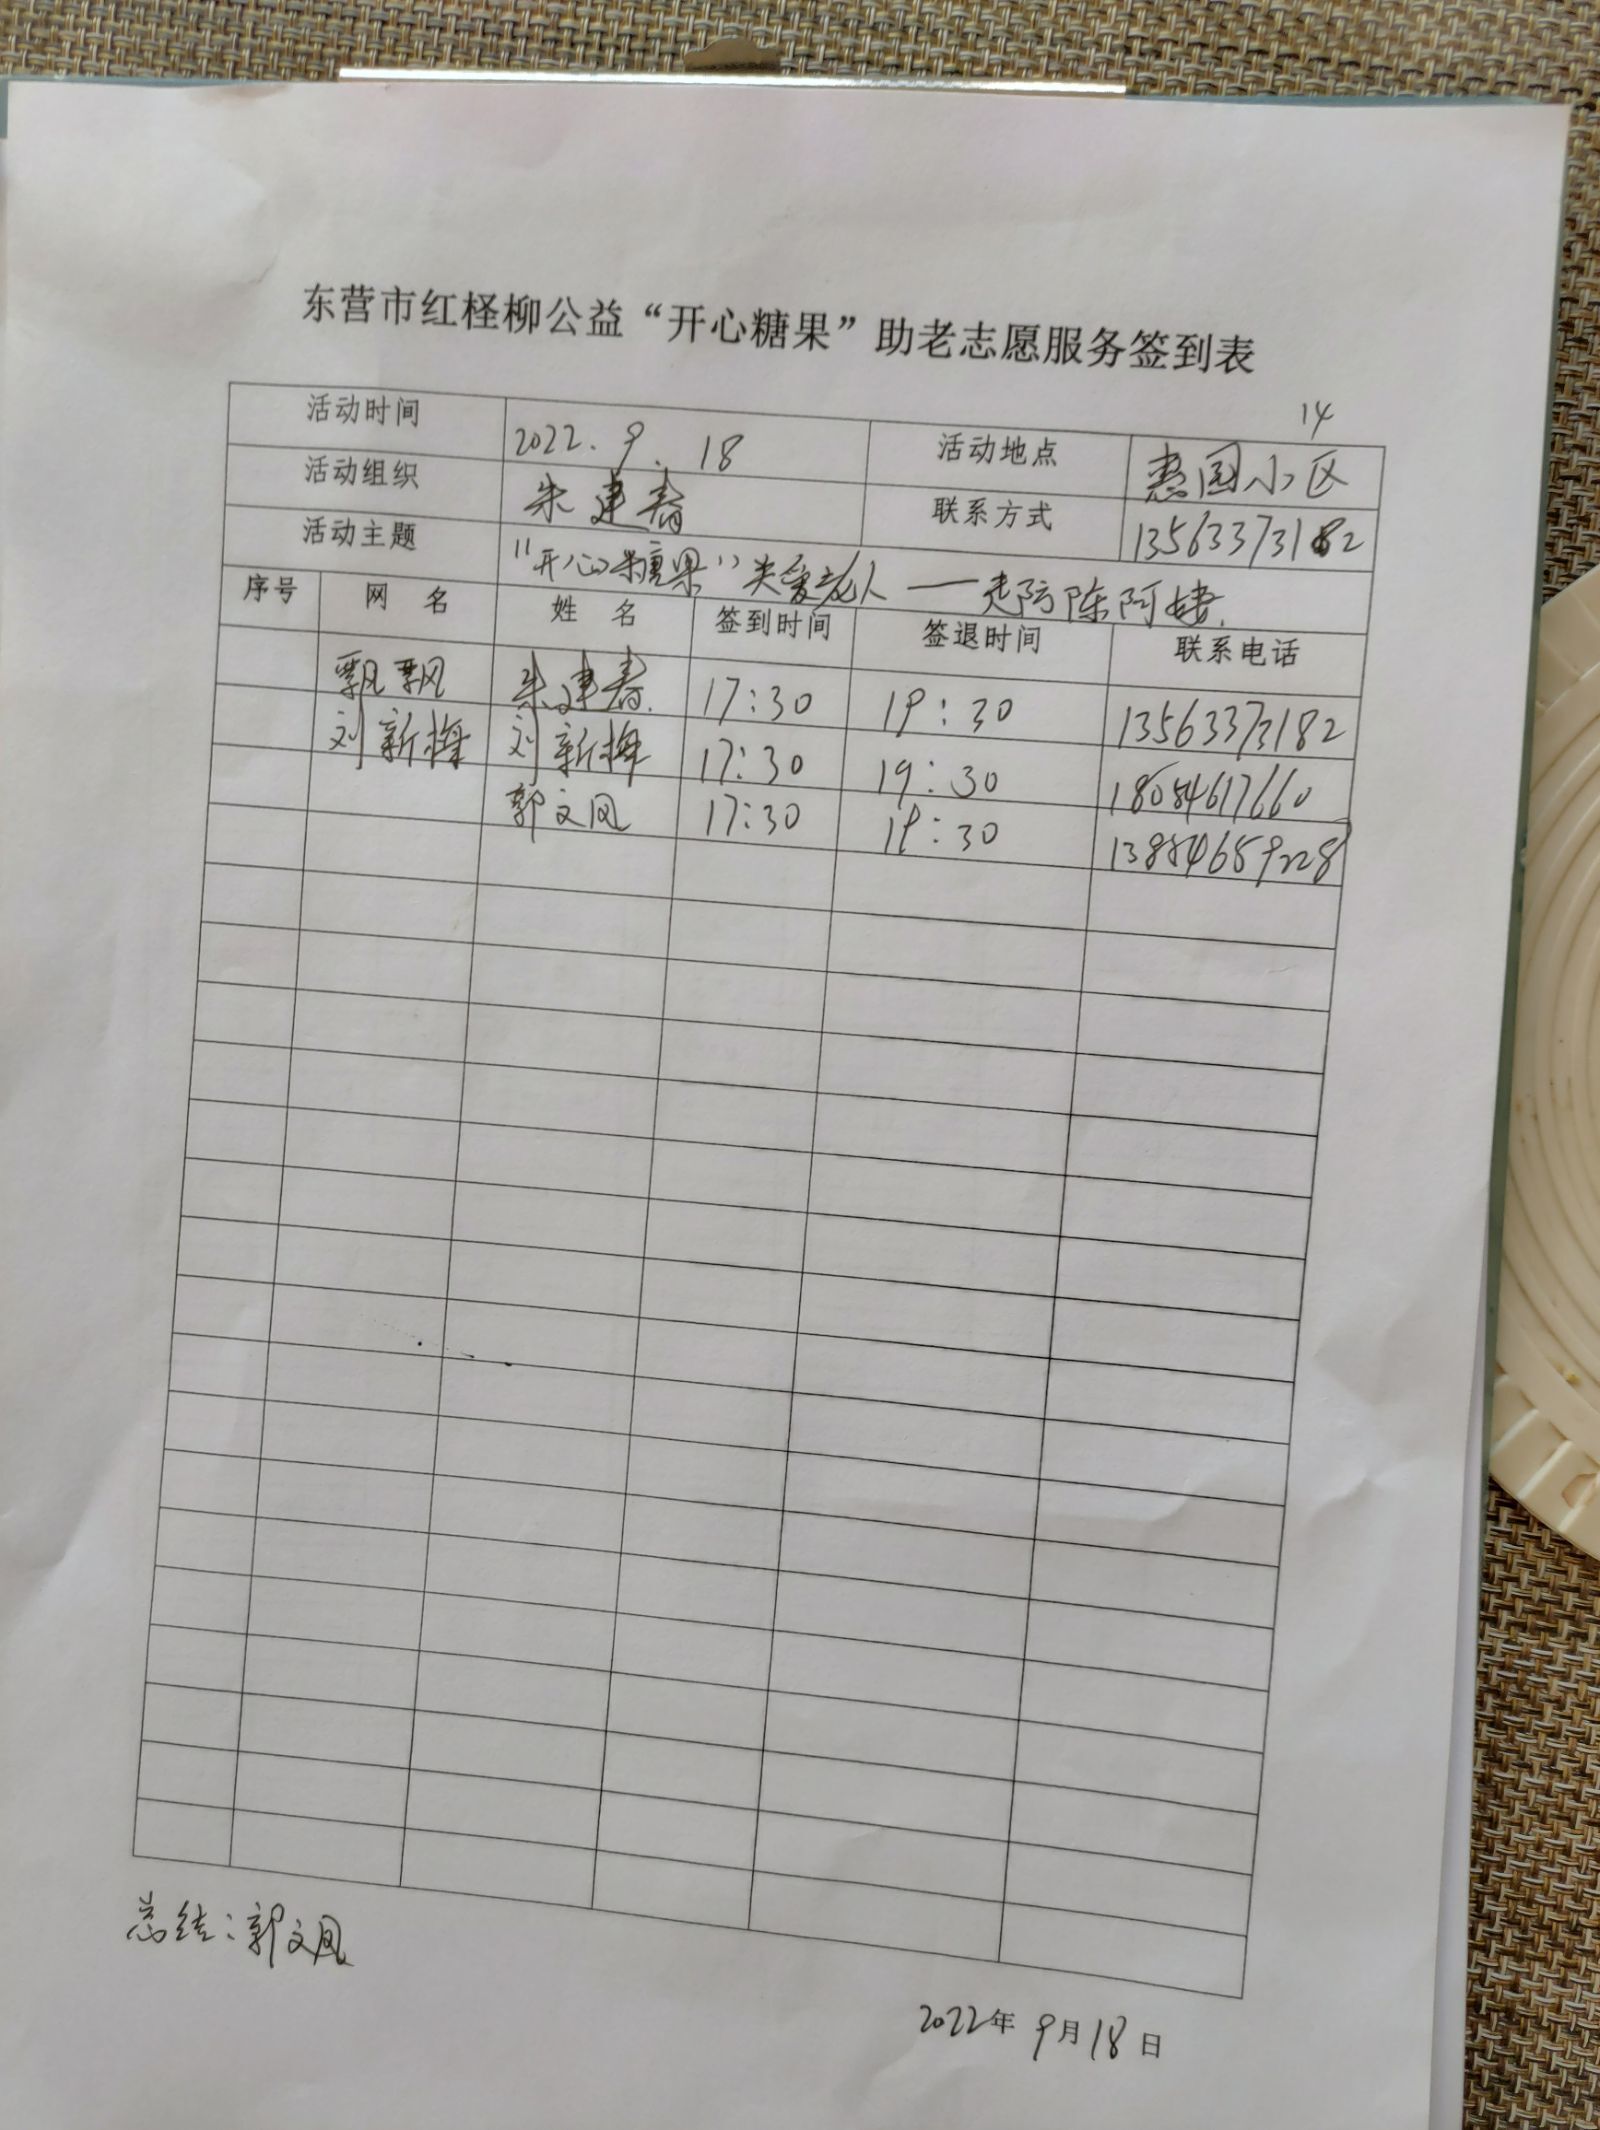 东营市红柽柳公益“开心糖果”助老志愿服务签到表
14
活动时间 2022.9.18 活动地点 惠园小区
活动组织 朱建春 联系方式 13563373182
活动主题 “开心糖果”关爱老人——走访陈阿姨.
序号 网 名 姓 名 签到时间 签退时间 联系电话
飘飘 朱建春. 17:30 19:30 13563373182
刘新梅 刘新梅 17:30 19:30 18054617660
郭文凤 17:30 19:30 13854659228
总结:郭文凤
2022年 9月18日